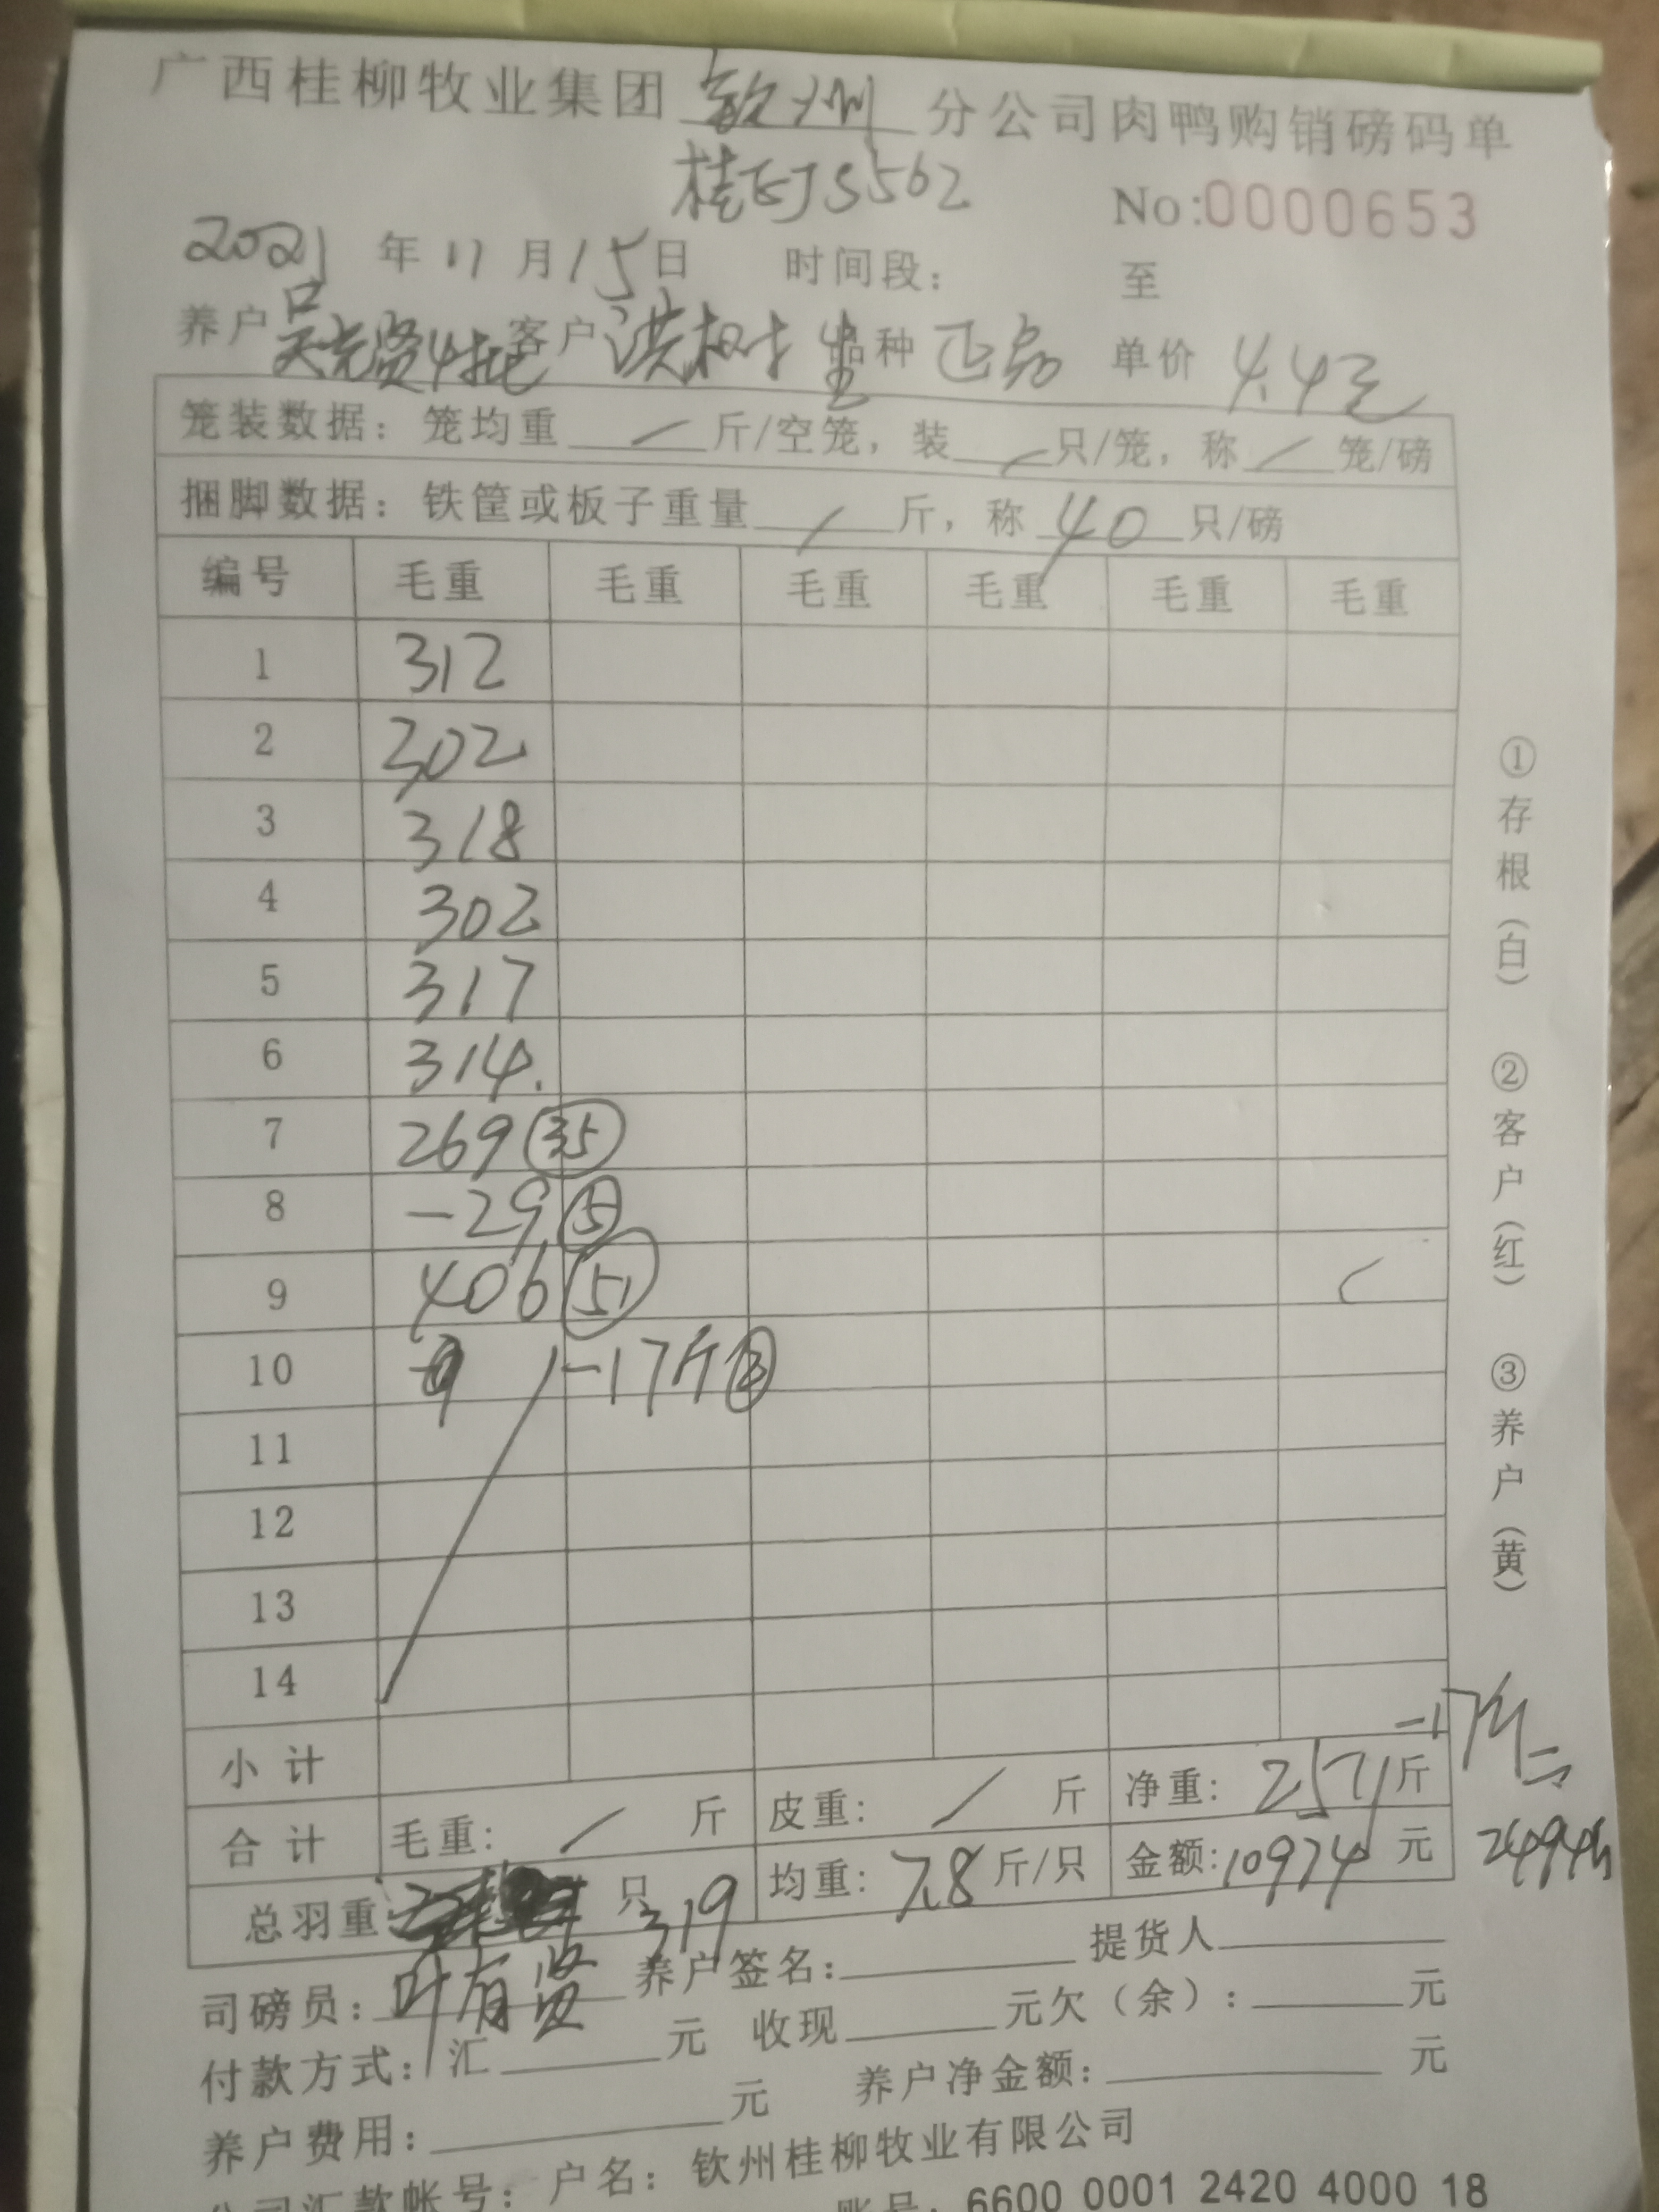 广西桂柳牧业集团 钦州 分公司肉鸭购销磅码单
No:0000653
2021 年 11 月 15 日 时间段: 至
养户 吴光贤4批 客户 洪树生 品种 正身 单价 4.4元
笼装数据:笼均重 / 斤/空笼,装 / 只/笼,称 / 笼/磅
捆脚数据:铁筐或板子重量 / 斤,称 40 只/磅
编号 毛重 毛重 毛重 毛重 毛重 毛重
1 312
2 302
3 318
4 302
5 317
6 314.
7 269 35
8 -29 5
9 406 51
10 -17斤 2
11
12
13
14
小计 -17斤=
合计 毛重: / 斤 皮重: / 斤 净重: 2511 斤
总羽重 只 319 均重: 7.8 斤/只 金额: 10974 元 2494斤
司磅员: 叶有贤 养户签名: 提货人
付款方式: 汇 元 收现 元欠(余): 元
养户费用: 元 养户净金额: 元
公司汇款帐号: 户名: 钦州桂柳牧业有限公司
账号: 6600 0001 2420 4000 18
①存根(白) ②客户(红) ③养户(黄)